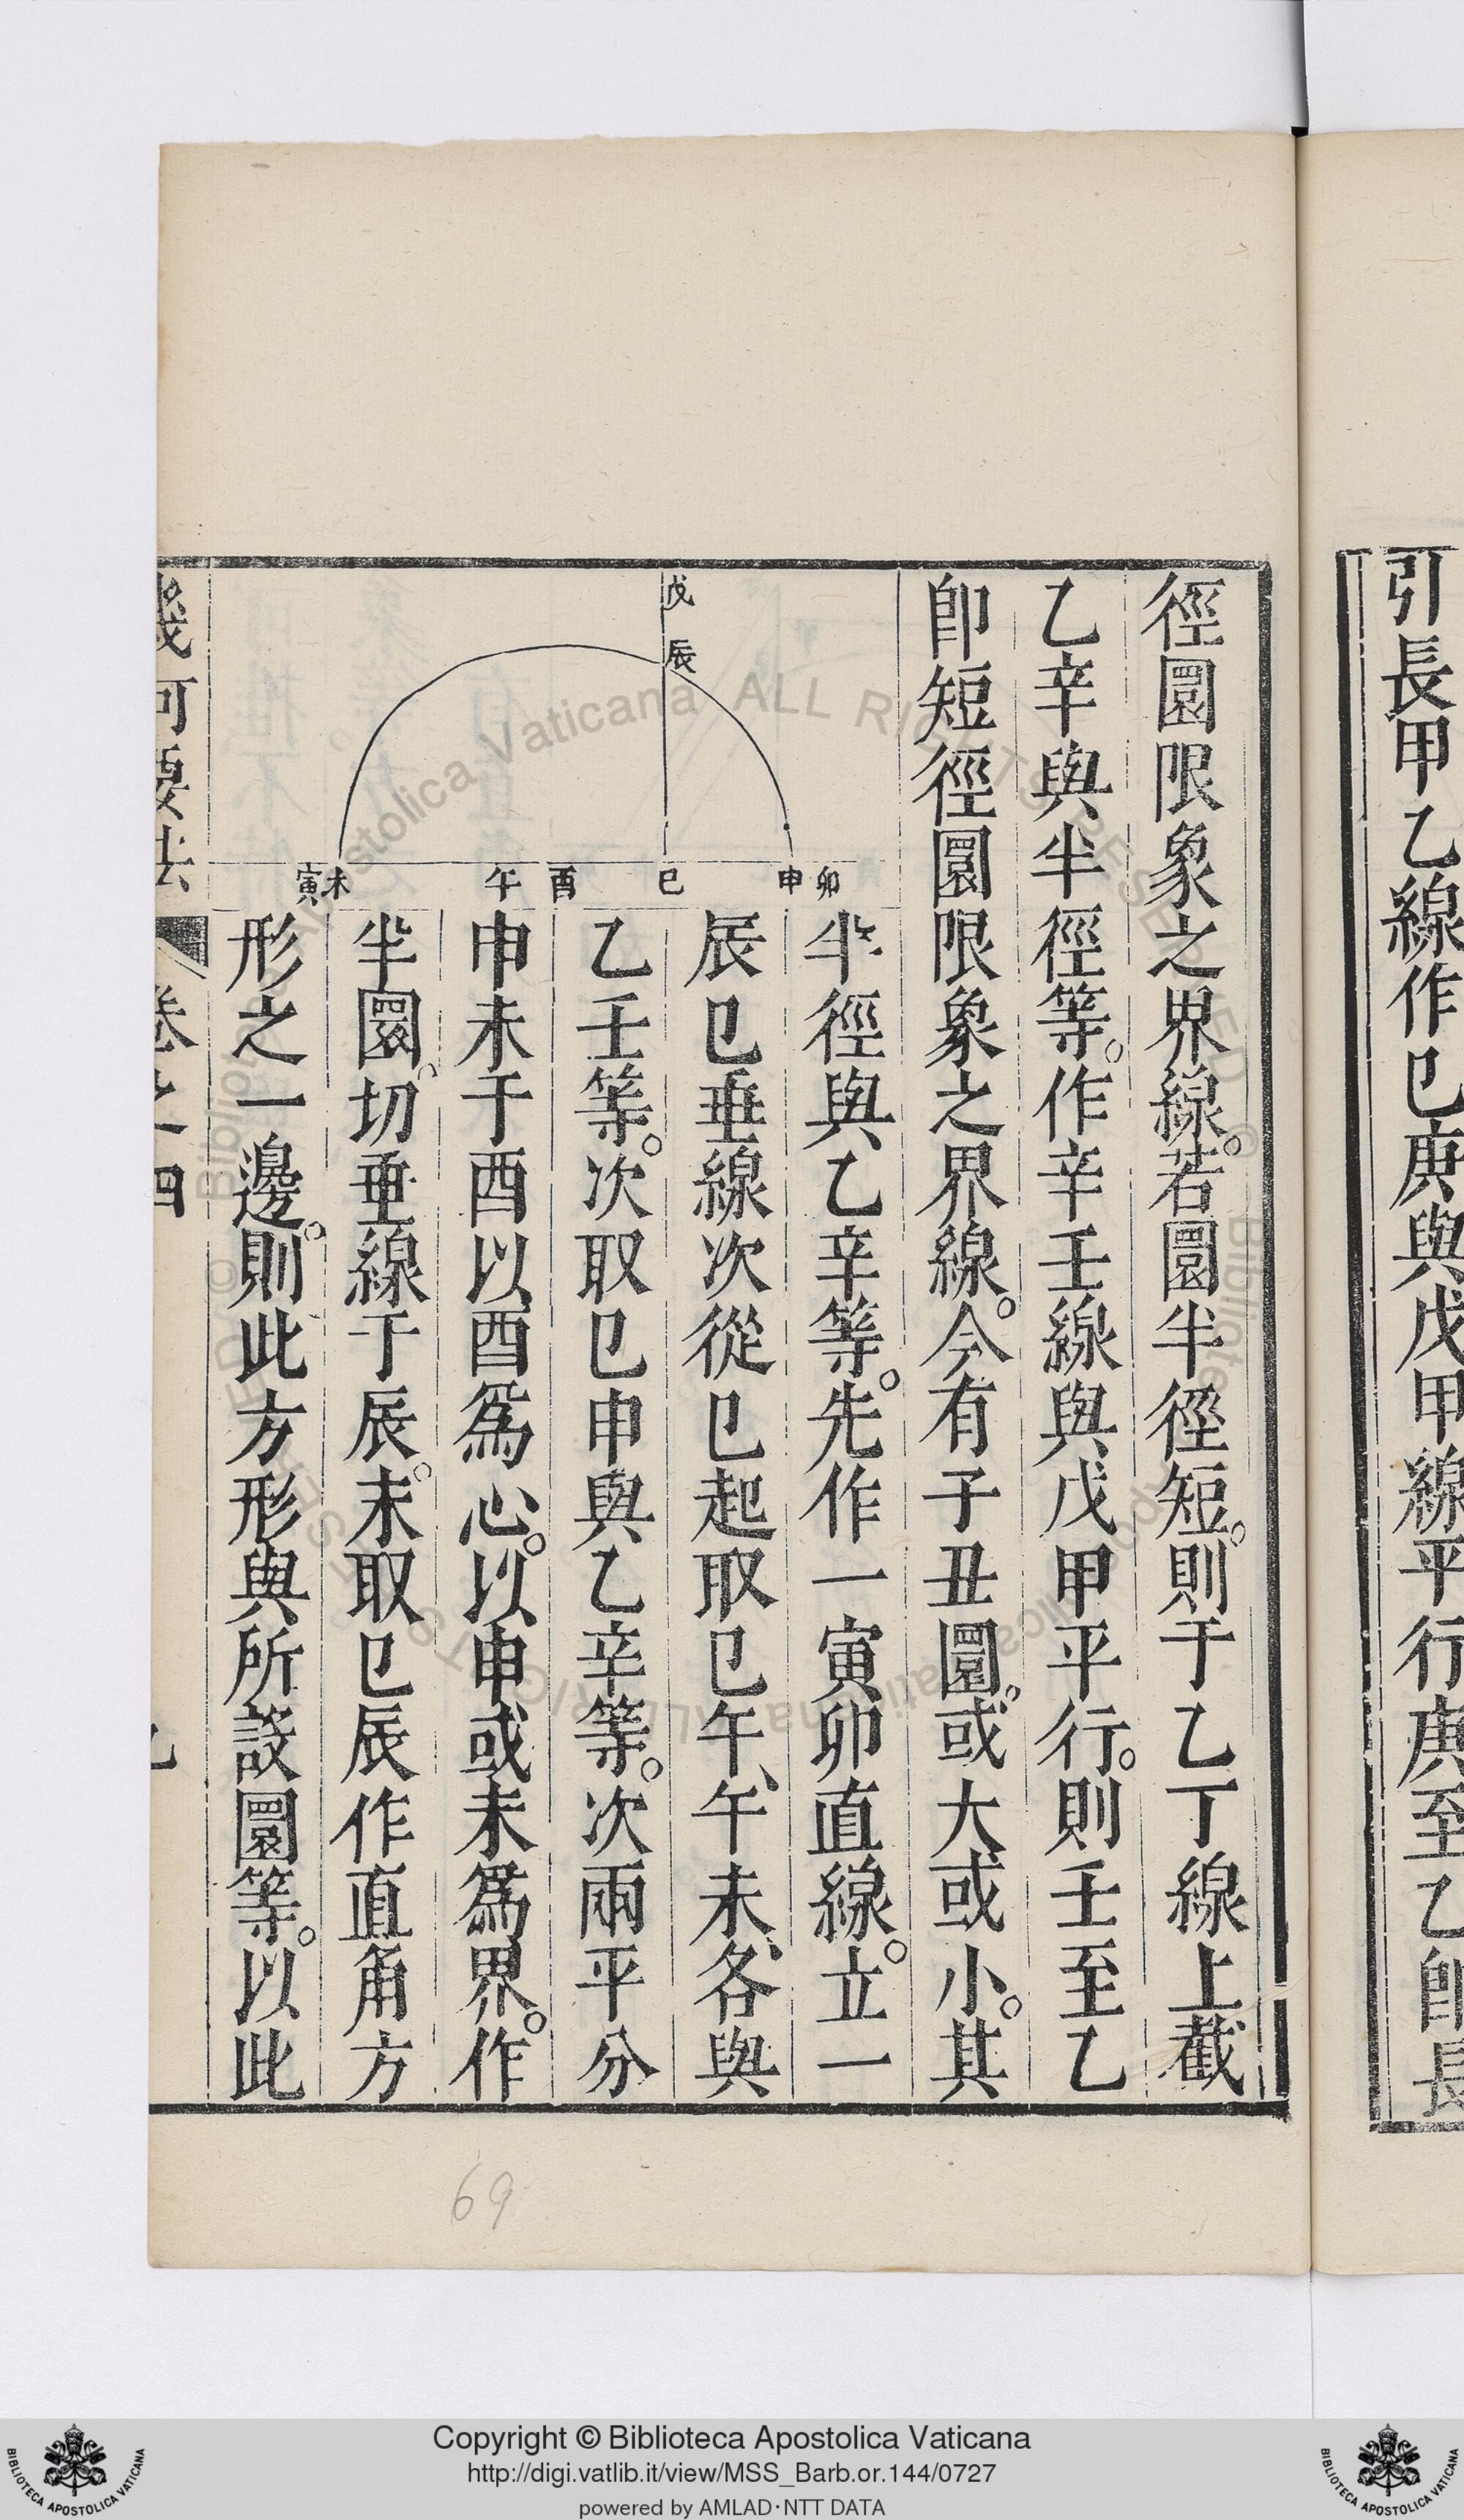 引長甲乙線作巳庚與戊甲線平行庚至乙卽長
徑圜限象之界線。若圜半徑短。則于乙丁線上截
乙辛與半徑等。作辛壬線與戊甲平行。則壬至乙
卽短徑圜限象之界線。今有子丑圜。或大或小。其
半徑與乙辛等。先作一寅卯直線。立一
辰巳垂線次從巳起取巳午、午未、各與
乙壬等。次取巳申與乙辛等。次兩平分
申未于酉以酉爲心。以申或未爲界。作
半圜。切垂線于辰。末取巳辰作直角方
形之一邊。則此方形與所設圜等。以此
戊
辰
卯
申
巳
酉
午
未
寅
幾何要法
卷之四
69
Copyright © Biblioteca Apostolica Vaticana
http://digi.vatlib.it/view/MSS_Barb.or.144/0727
powered by AMLAD·NTT DATA
BIBLIOTECA APOSTOLICA VATICANA
BIBLIOTECA APOSTOLICA VATICANA